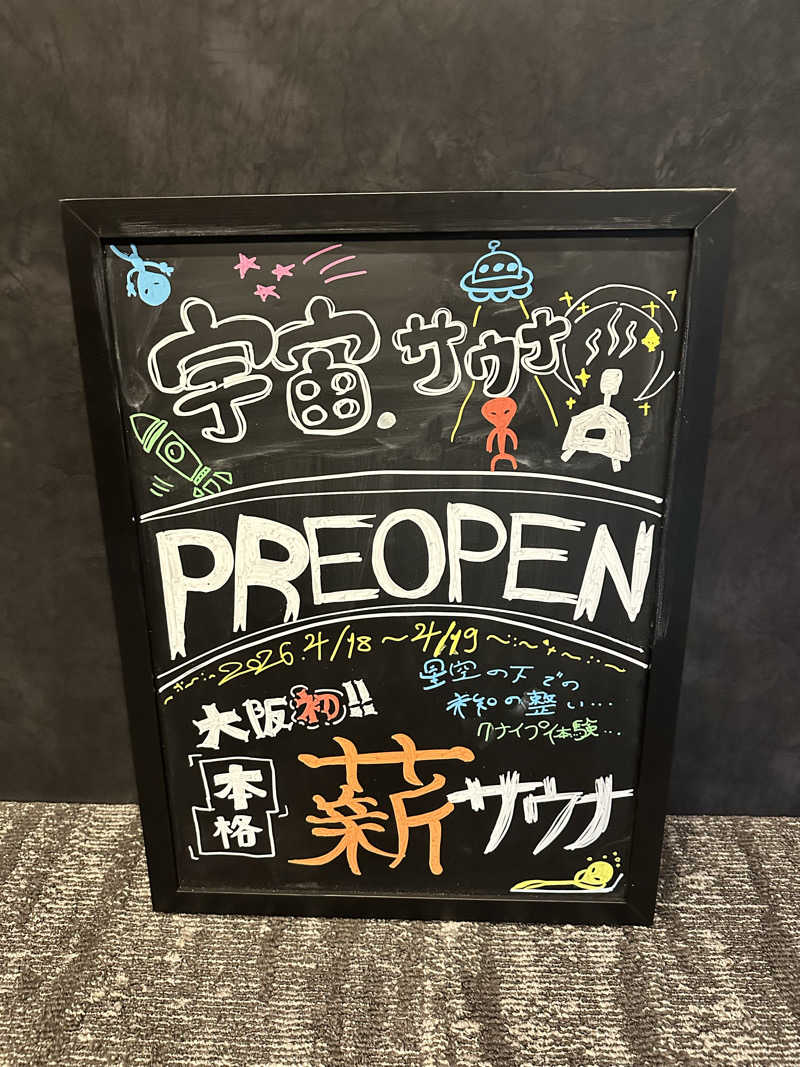 宇宙サウナ
PREOPEN
2026.4/18～4/19～
星空の下での
未知の整い…
クナイプ体験…
大阪初!!
本格
薪サウナ